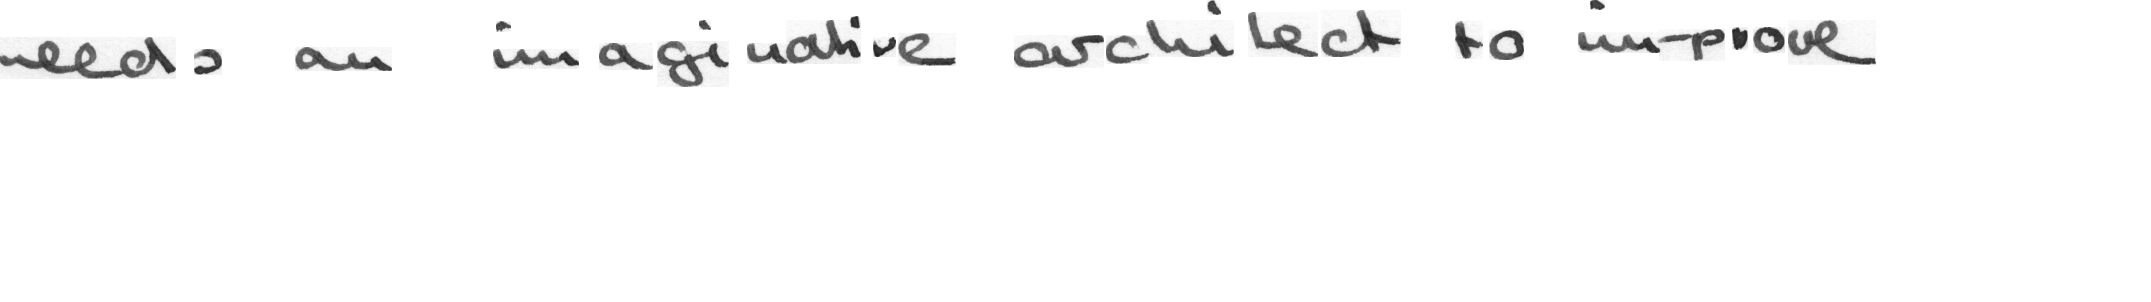 needs an imaginative architect to improve